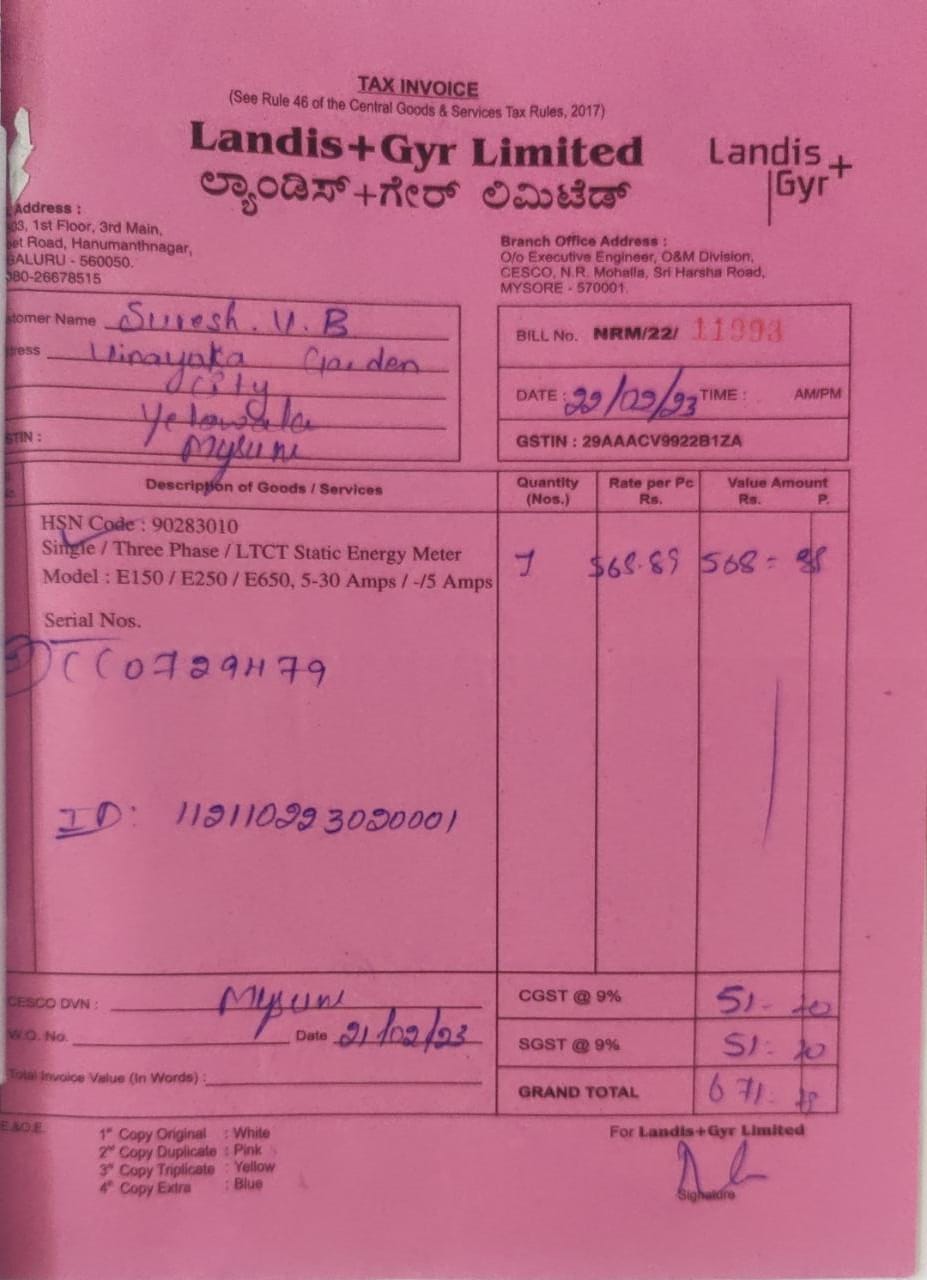 TAX INVOICE
(See Rule 46 of the Central Goods & Services Tax Rules, 2017)
Landis+Gyr Limited
ಲ್ಯಾಂಡಿಸ್+ಗೇರ್ ಲಿಮಿಟೆಡ್
Landis+
Gyr
Address :
1st Floor, 3rd Main,
Road, Hanumanthnagar,
GALURU - 560050.
080-26678515
Branch Office Address :
O/o Executive Engineer, O&M Division,
CESCO, N.R. Mohalla, Sri Harsha Road,
MYSORE - 570001.
tomer Name Suresh. V. B
ress Vinayaka Garden
City
STIN :
BILL No. NRM/22/ 11993
DATE : 22/02/23 TIME : AM/PM
GSTIN : 29AAACV9922B1ZA
Description of Goods / Services
Quantity (Nos.)
Rate per Pc Rs.
Value Amount Rs. P.
HSN Code : 90283010
Single / Three Phase / LTCT Static Energy Meter
Model : E150 / E250 / E650, 5-30 Amps / -/5 Amps
1 568.89 568 =
Serial Nos.
ID: 112110223020001
CESCO DVN :
W.O. No. Date 21/02/23
Total Invoice Value (In Words) :
CGST @ 9% 51- 20
SGST @ 9% 51- 20
GRAND TOTAL 671-
E.&O.E.
1st Copy Original : White
2nd Copy Duplicate : Pink
3rd Copy Triplicate : Yellow
4th Copy Extra : Blue
For Landis+Gyr Limited
Signature